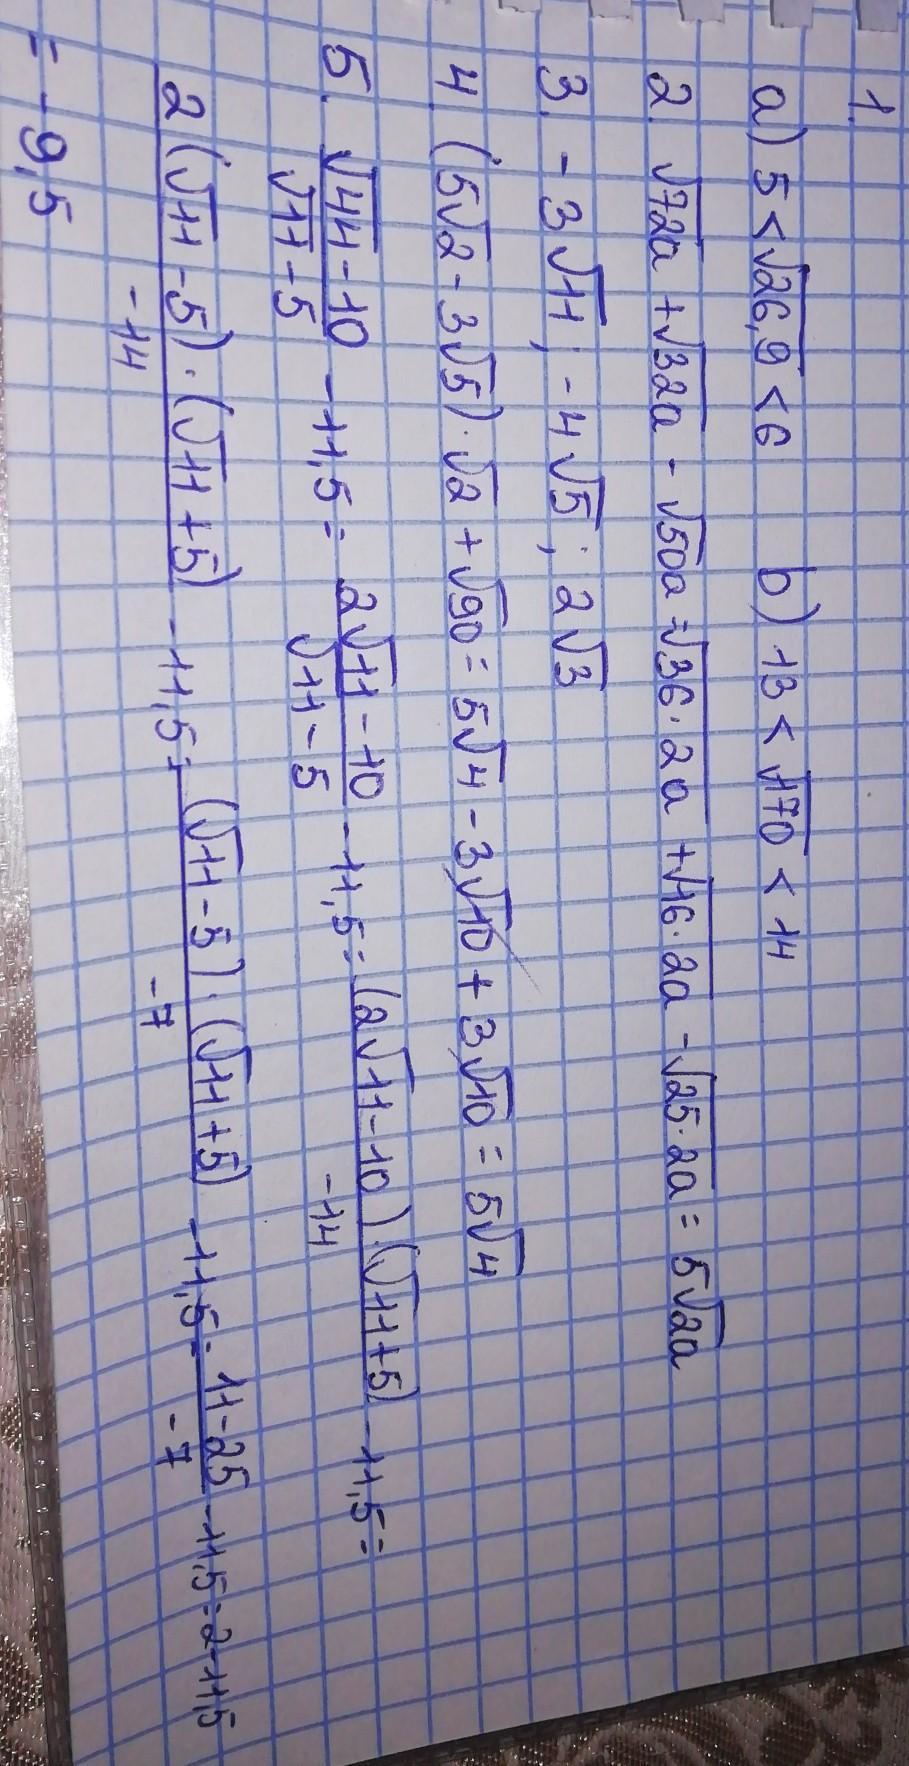 1.
a) 5 < √26,9 < 6 b) 13 < √170 < 14
2. √72a + √32a - √50a = √36·2a + √16·2a - √25·2a = 5√2a
3. - 3√11; - 4√5; 2√3
4. (5√2 - 3√5)·√2 + √90 = 5√4 - 3√10 + 3√10 = 5√4
5. (√44 - 10)/(√11 - 5) - 11,5 = (2√11 - 10)/(√11 - 5) - 11,5 = ((2√11 - 10)·(√11 + 5))/(-14) - 11,5 =
(2(√11 - 5)·(√11 + 5))/(-14) - 11,5 = ((√11 - 5)·(√11 + 5))/(-7) - 11,5 = (11 - 25)/(-7) - 11,5 = 2 - 11,5
= - 9,5